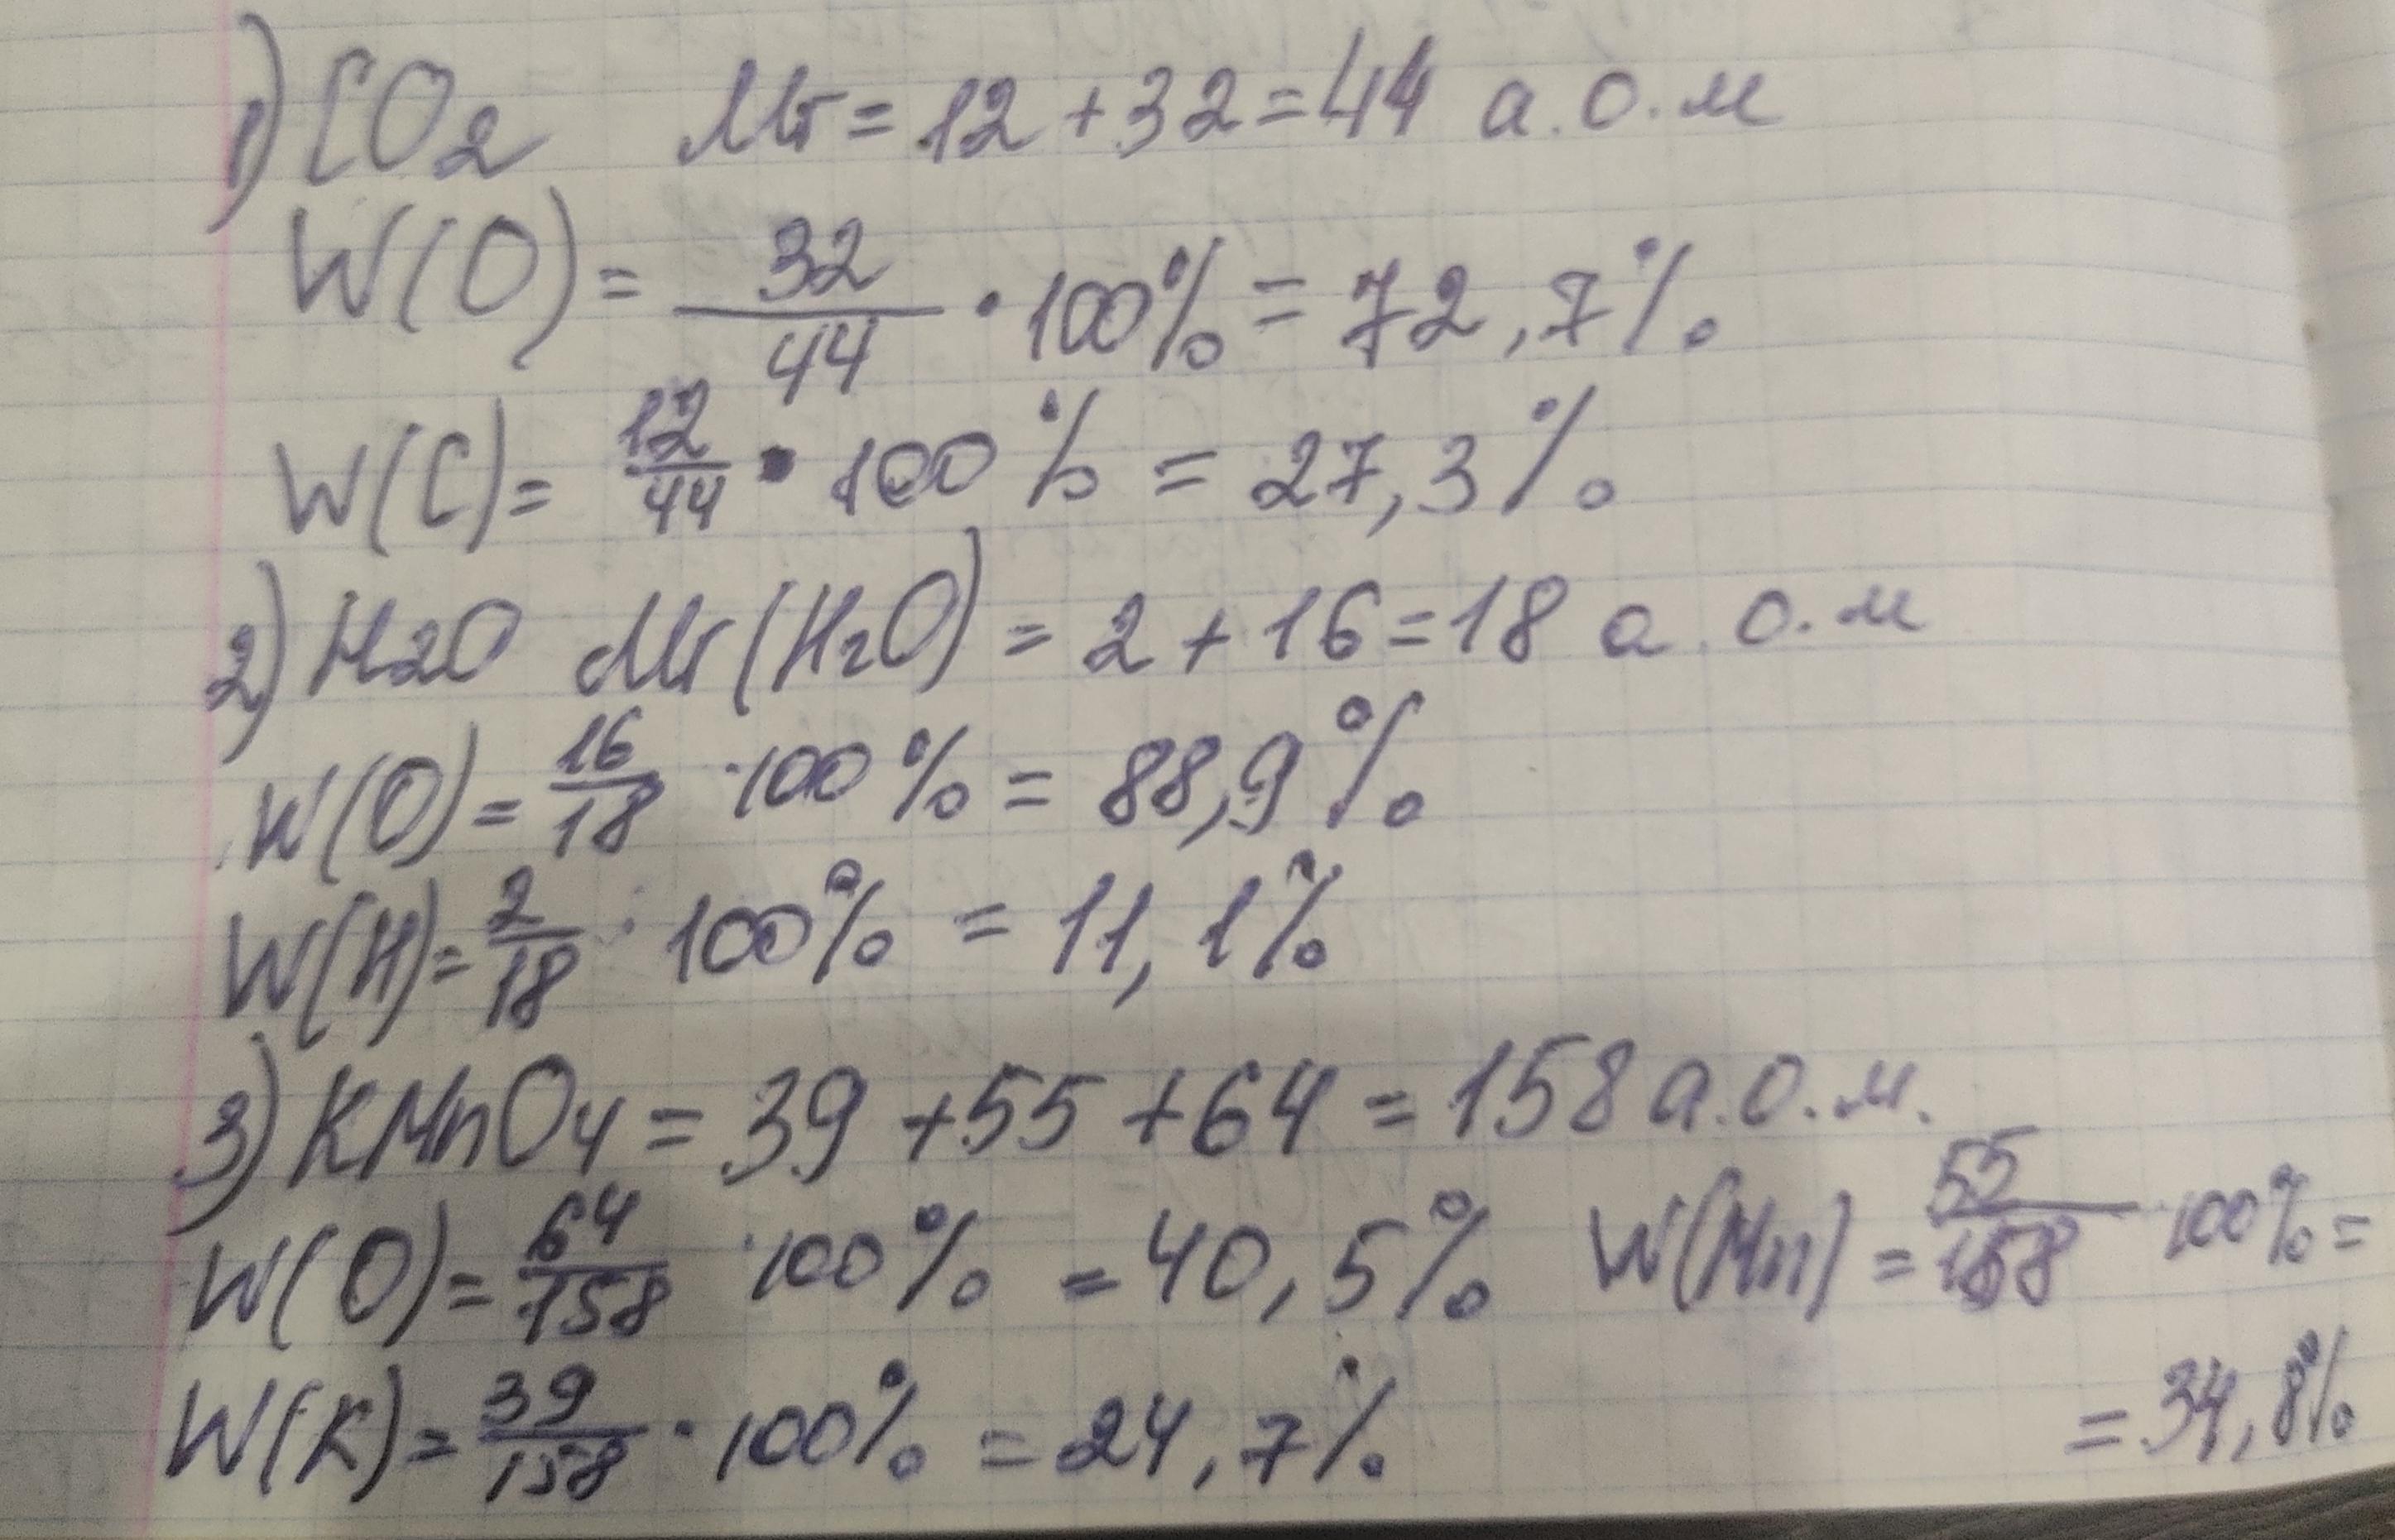 1) CO2 Mr = 12 + 32 = 44 а.о.м
W(O) = 32/44 · 100% = 72,7%
W(C) = 12/44 · 100% = 27,3%
2) H2O Mr(H2O) = 2 + 16 = 18 а.о.м
W(O) = 16/18 · 100% = 88,9%
W(H) = 2/18 · 100% = 11,1%
3) KMnO4 = 39 + 55 + 64 = 158 а.о.м.
W(O) = 64/158 · 100% = 40,5% W(Mn) = 55/158 100% =
= 34,8%
W(K) = 39/158 · 100% = 24,7%